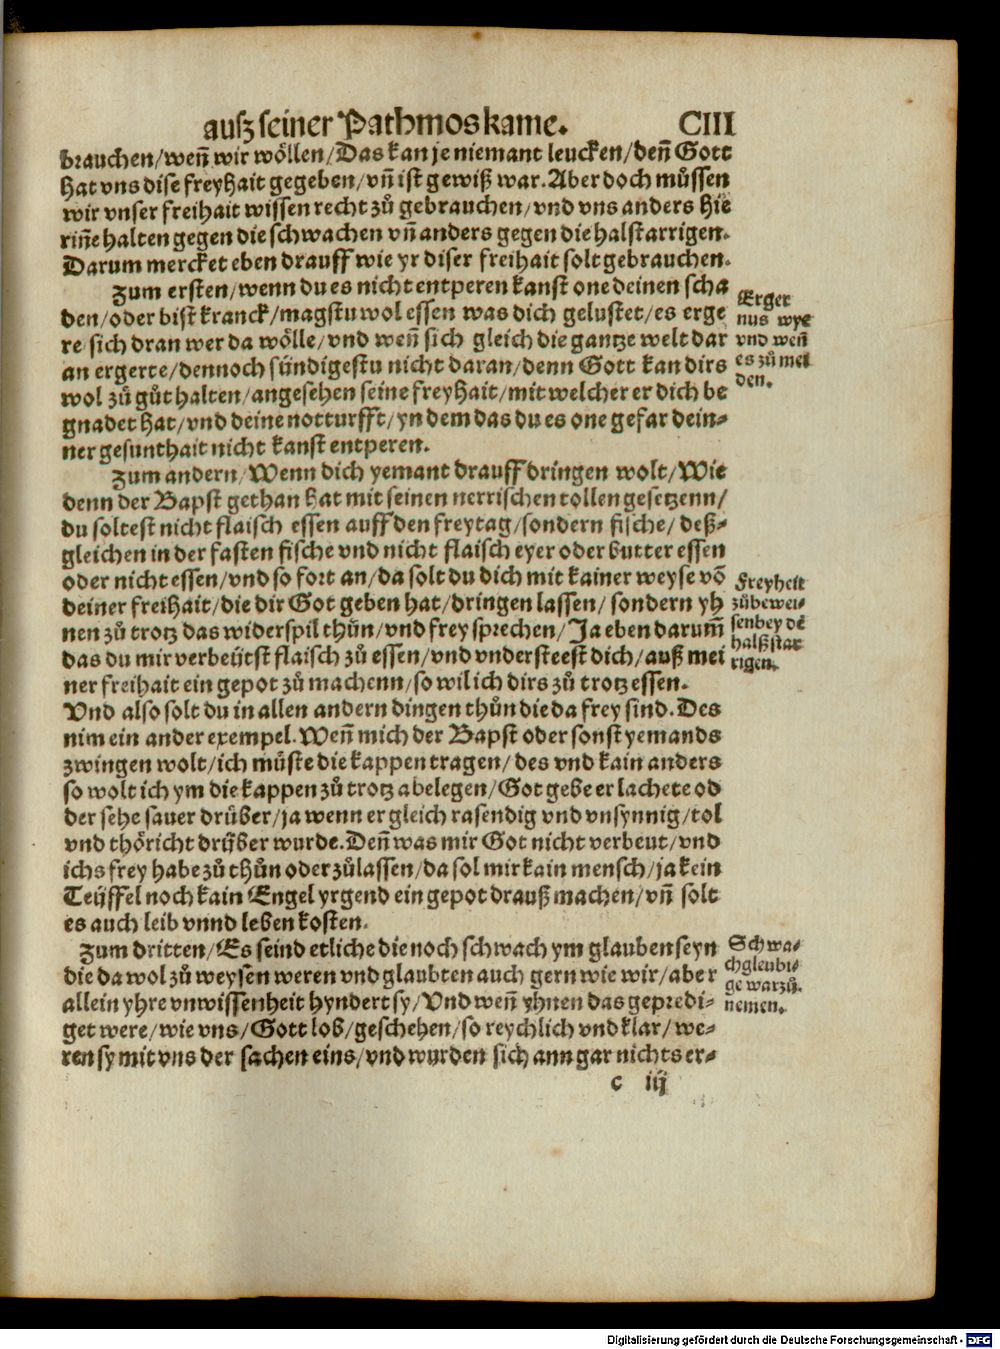 auſz ſeiner Pathmos kame. CIII
brauchen/weñ wir wöllen/Das kan je niemant leucken/deñ Gott
hat vns diſe freyhait gegeben/vñ iſt gewiß war. Aber doch müſſen
wir vnſer freihait wiſſen recht zů gebrauchen/vnd vns anders hie
riñe halten gegen die ſchwachen vñ anders gegen die halſtarrigen.
Darum mercket eben drauff wie yr diſer freihait ſolt gebrauchen.
Zum erſten/wenn du es nicht entperen kanſt one deinen ſcha
den/oder biſt kranck/magſtu wol eſſen was dich geluſtet/es erge
re ſich dran wer da wölle/vnd weñ ſich gleich die gantze welt dar
an ergerte/dennoch ſündigeſtu nicht daran/denn Gott kan dirs
wol zů gůt halten/angeſehen ſeine freyhait/mit welcher er dich be
gnadet hat/vnd deine notturfft/yn dem das du es one gefar dein⸗
ner geſunthait nicht kanſt entperen.
Erger
nus wye
vnd weñ
es zů mei
den.
Zum andern/Wenn dich yemant drauff dringen wolt/Wie
denn der Bapſt gethan hat mit ſeinen nerriſchen tollen geſetzenn/
du ſolteſt nicht flaiſch eſſen auff den freytag/ſondern fiſche/deß⸗
gleichen in der faſten fiſche vnd nicht flaiſch eyer oder butter eſſen
oder nicht eſſen/vnd ſo fort an/da ſolt du dich mit kainer weyſe võ
deiner freihait/die dir Got geben hat/dringen laſſen/ ſondern yh
nen zů trotz das widerſpil thůn/vnd frey ſprechen/Ja eben darum̃
das du mir verbeütſt flaiſch zů eſſen/vnd vnderſteeſt dich/auß mei
ner freihait ein gepot zů machenn/ſo wil ich dirs zů trotz eſſen.
Freyheit
zů bewei⸗
ſen bey dẽ
halßſtar
rigen.
Vnd alſo ſolt du in allen andern dingen thůn die da frey ſind. Des
nim ein ander exempel. Weñ mich der Bapſt oder ſonſt yemands
zwingen wolt/ich müſte die kappen tragen/des vnd kain anders
ſo wolt ich ym die kappen zů trotz abelegen/Got gebe er lachete od
der ſehe ſauer drüber/ja wenn er gleich raſendig vnd vnſynnig/tol
vnd thöricht drüber wurde. Deñ was mir Got nicht verbeut/vnd
ichs frey habe zů thůn oder zůlaſſen/da ſol mir kain menſch/ja kein
Teüffel noch kain Engel yrgend ein gepot drauß machen/vñ ſolt
es auch leib vnnd leben koſten.
Zum dritten/Es ſeind etliche die noch ſchwach ym glauben ſeyn
die da wol zů weyſen weren vnd glaubten auch gern wie wir/aber
allein yhre vnwiſſenheit hyndert ſy/Vnd weñ yhnen das gepredi⸗
get were/wie vns/Gott lob/geſchehen/ſo reychlich vnd klar/we⸗
ren ſy mit vns der ſachen eins/vnd wurden ſich ann gar nichts er⸗
Schwa⸗
chgleubi⸗
ge war zů
nemen.
c iij
Digitalisierung gefördert durch die Deutsche Forschungsgemeinschaft - DFG